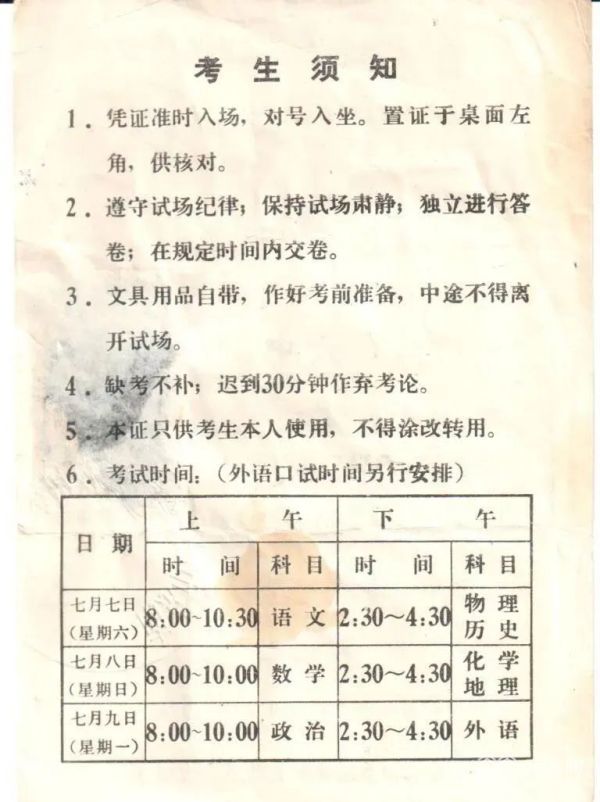 考生须知
1．凭证准时入场，对号入坐。置证于桌面左
角，供核对。
2．遵守试场纪律；保持试场肃静；独立进行答
卷；在规定时间内交卷。
3．文具用品自带，作好考前准备，中途不得离
开试场。
4．缺考不补；迟到30分钟作弃考论。
5．本证只供考生本人使用，不得涂改转用。
6．考试时间：（外语口试时间另行安排）
日期 上午 下午
时间 科目 时间 科目
七月七日 8:00~10:30 语文 2:30～4:30 物理
（星期六） 历史
七月八日 8:00~10:00 数学 2:30～4:30 化学
（星期日） 地理
七月九日 8:00~10:00 政治 2:30～4:30 外语
（星期一）